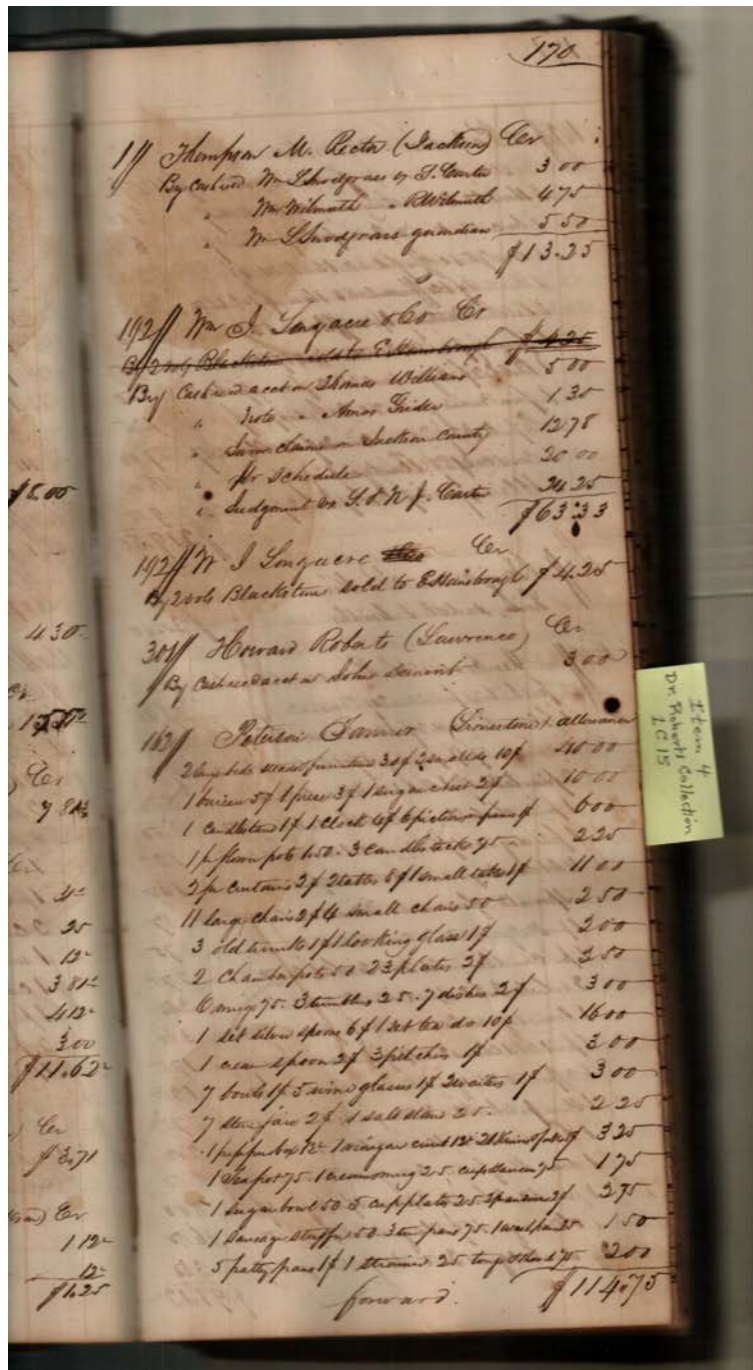 170
1 // Thompson M. Rector (Jackson) Cr
By Cash recd Wm Snodgrass & T. Carter 3 00
" Wm Wilmuth " P Wilmuth 4 75
" Wm Snodgrass guardian 5 50
$13.25
192 // Wm J. Longacre & Co Cr
By 2 vols Blackstone sold to E Hansbrough $4.25
By Cash recd acct on Thomas Williams 5 00
" Note " Amos Grider 1.30
" claim on Jackson County 12 78
" pr schedule 20 00
" Judgment on S. & N J. Carter 24 25
$63.33
192 // W J Longacre Cr
By 2 vols Blackstone sold to E Hansbrough $4.25
301 // Howard Roberts (Lawrence) Cr
By Cash recd acct on John 3 00
162 // Peterson Tanner (Limestone) allowance
2 large bedsteads & furniture 30$ 2 small do 10$ 40 00
1 bureau 5$ 1 press 3$ 1 sugar chest 2$ 10 00
1 candlestand 1$ 1 clock 4$ 6 pictures in frames 1$ 6 00
1 pr flower pots 1.50. 3 candlesticks 75 2 25
2 pr curtains 2$ 2 tables 8$ 1 small table 1$ 11 00
11 large chairs 2$ 4 small chairs 50 2 50
3 old trunks 1$ 1 looking glass 1$ 2 00
2 chamber pots 50 23 plates 2$ 2 50
6 mugs 75. 3 tumblers 25. 7 dishes 2$ 3 00
1 set silver spoons 6$ 1 set tea do 10$ 16 00
1 cream spoon 2$ 3 pitchers 1$ 3 00
7 bowls 1$ 5 wine glasses 1$ 2 waiters 1$ 3 00
7 stone jars 2$ 1 salt stand 25. 2 25
1 pepper box 12 1 vinegar cruet 12 3 25
1 Tea pot 75. 1 cream mug 25. cups & saucers 75 1 75
1 sugar bowl 50 5 cup plates 25 2$ 2 75
1 sausage stuffer 50 3 tin pans 75. 1 25 1 50
5 patty pans 1$ 1 strainer 25 75 2 00
forward. $114.75
Item 4
Dr. Roberts Collection
1C15
$8.00
4 30
Cr
7 81
Cr
25
12
3 81
4 12
3 00
$11.62
Cr
$3.71
Cr
1 12
12
$1.25